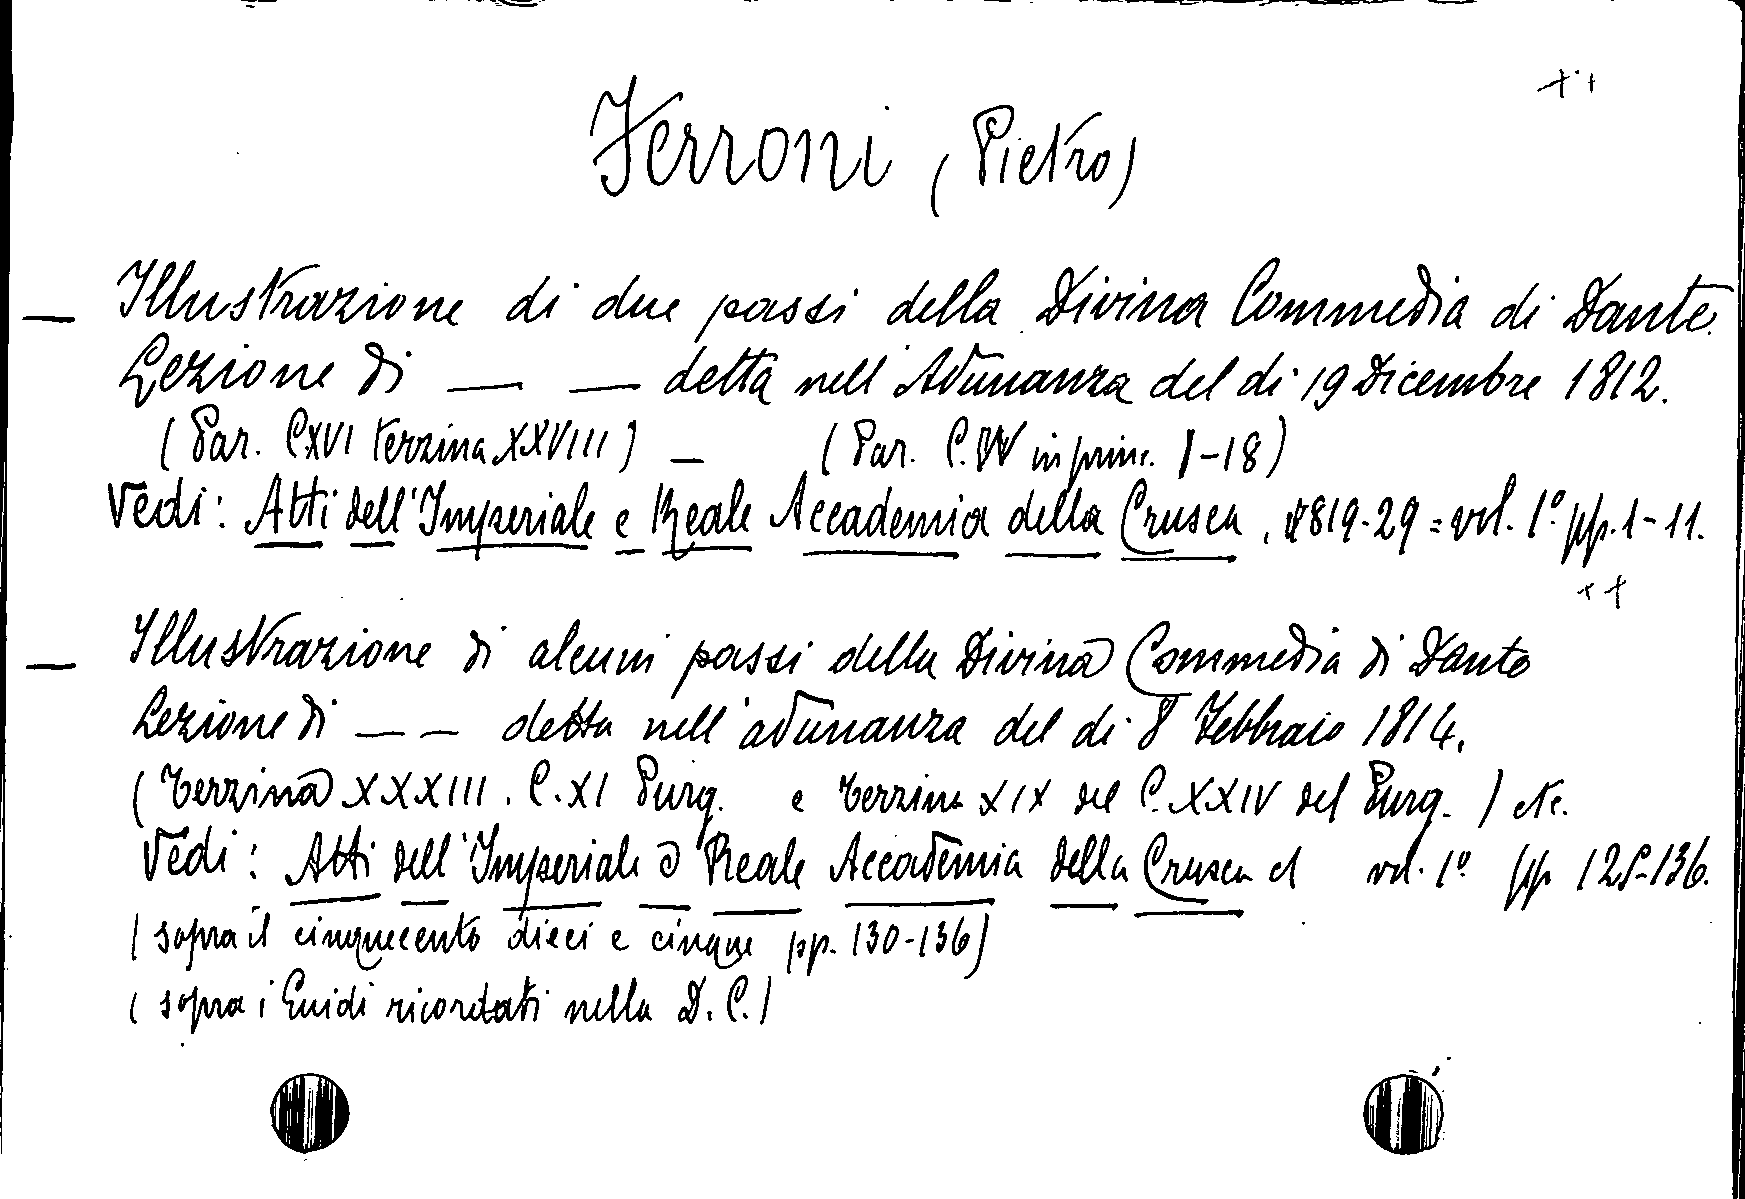 Ferroni (Pietro)
— Illustrazione di due passi della Divina Commedia di Dante.
Lezione di — — detta nell'Adunanza del di 19 Dicembre 1812.
(Par. C XVI terzina XXVIII) — (Par. C. in princ. 1-18)
Vedi: Atti dell'Imperiale e Reale Accademia della Crusca, 1819-29 = vol. 1º pp. 1-11.
— Illustrazione di alcuni passi della Divina Commedia di Dante
Lezione di — — detta nell'adunanza del di 8 Febbraio 1814.
(Terzina XXXIII. C. XI Purg. e terzina XIX del C. XXIV del Purg.) etc.
Vedi: Atti dell'Imperiale e Reale Accademia della Crusca vol. 1º pp 125-136.
(sopra il cinquecento dieci e cinque pp. 130-136)
(sopra i Guidi ricordati nella D. C.)